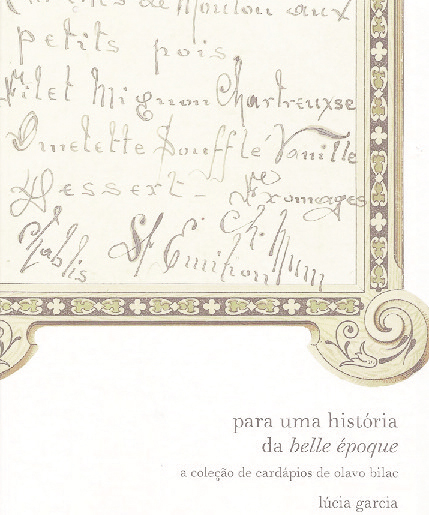 de Mouton aux
petits pois.
Filet Mignon Chartreuse
Omelette Soufflé Vanille
Dessert - Fromages
Chablis St Emilion Ch. Mum
para uma história
da belle époque
a coleção de cardápios de olavo bilac
lúcia garcia